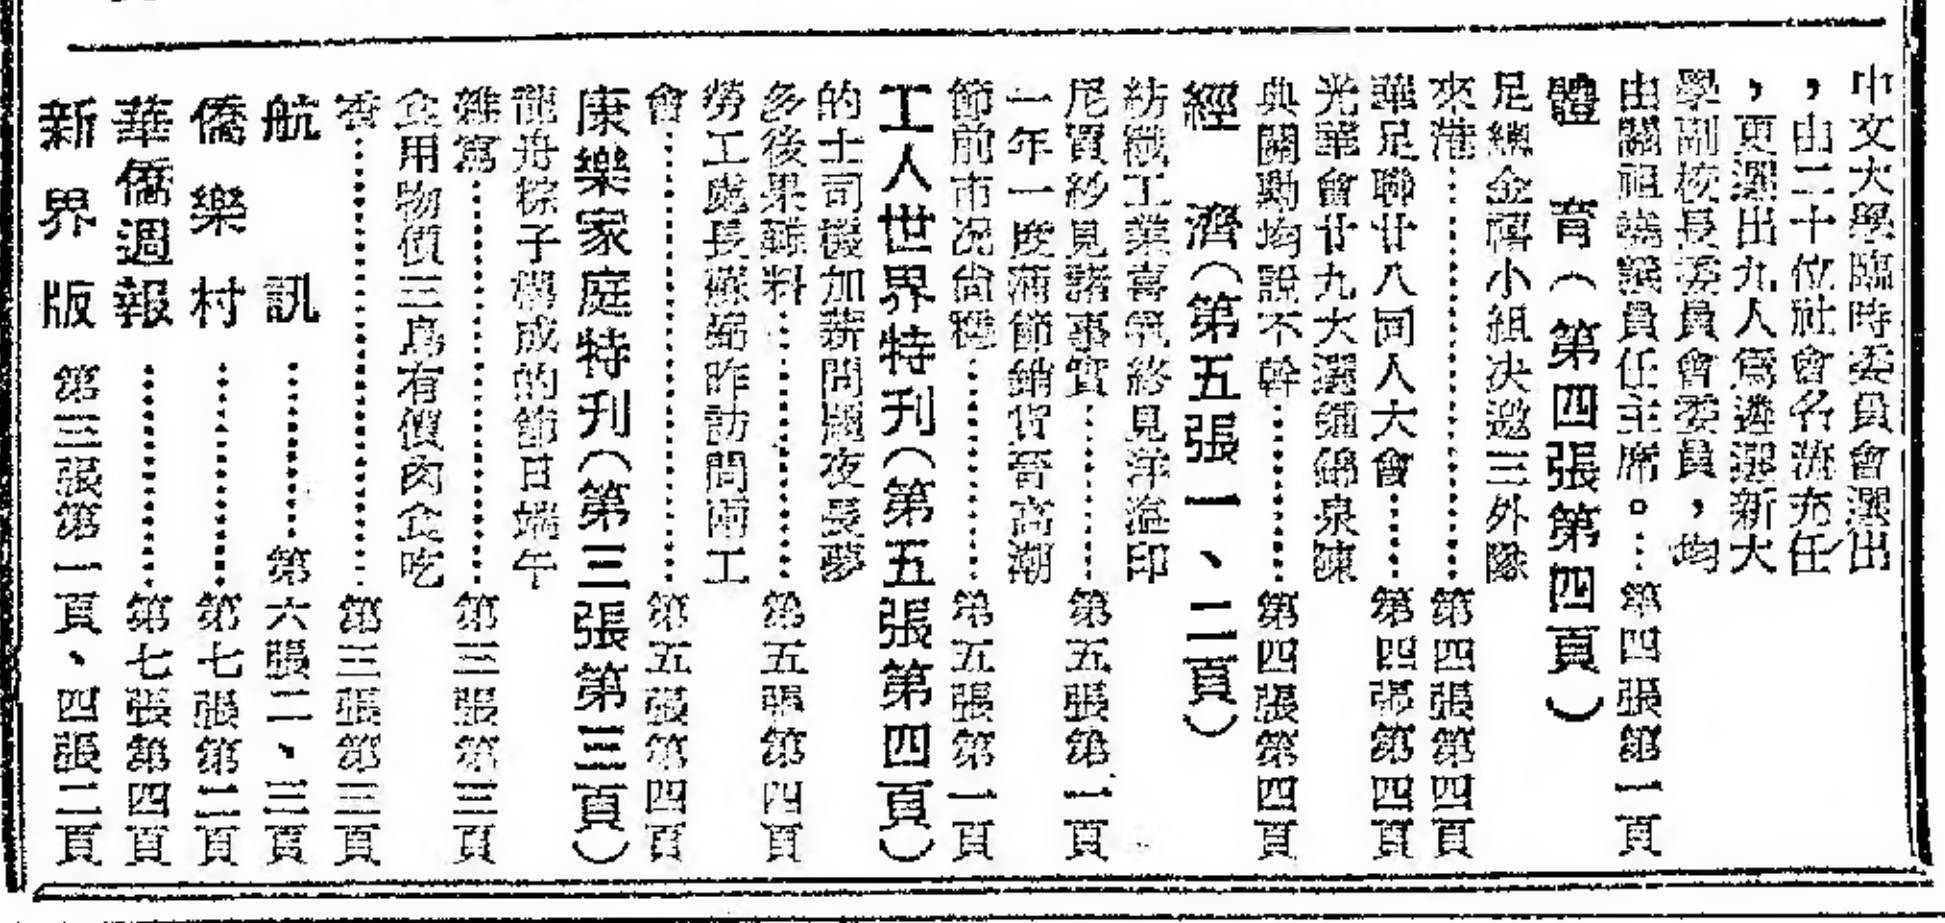 中文大學臨時委員會選出
，由二十位社會名流充任
，更選出九人為遴選新大
學副校長委員會委員，均
由關祖堯議員任主席。…第四張第一頁
體育（第四張第四頁）
足總金禧小組決邀三外隊
來港……第四張第四頁
華足聯廿八同人大會……第四張第四頁
光華會廿九大選鍾錦泉陳
典關勳均說不幹……第四張第四頁
經濟（第五張一、二頁）
紡織工業喜氣終見洋溢印
尼買紗見諸事實……第五張第一頁
一年一度蒲節銷貨晉高潮
節前市况尚穩……第五張第一頁
工人世界特刋（第五張第四頁）
的士司機加薪問題夜長夢
多後果難料……第五張第四頁
勞工處長蘇綿昨訪問兩工
會……第五張第四頁
康樂家庭特刋（第三張第三頁）
龍舟粽子構成的節日端午
雜寫……第三張第三頁
食用物價三鳥有價肉食吃
香……第三張第三頁
航訊……第六張二、三頁
僑樂村……第七張第二頁
華僑週報……第七張第四頁
新界版 第三張第一頁、四張二頁